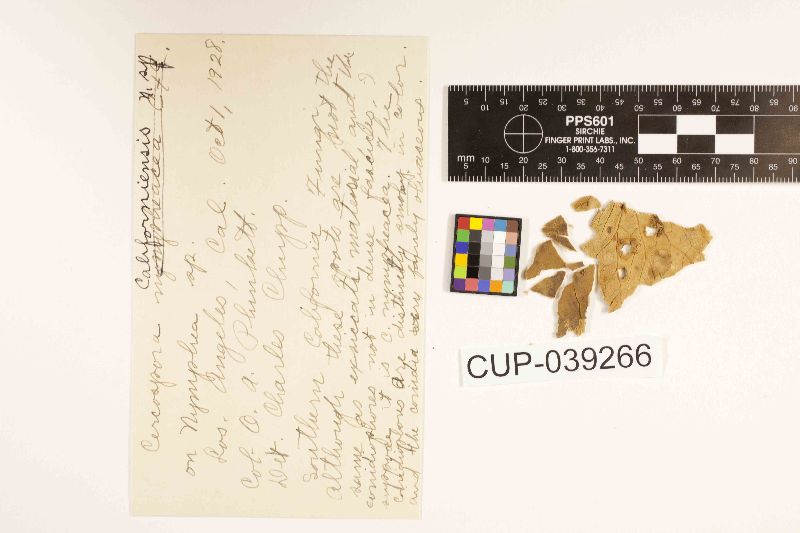 Californiensis n. sp.
Cercospora nymphaeacea C & E
on Nymphaea sp.
Los Angeles, Cal. Oct 1, 1928.
Col. O. A. Plunkett.
Det. Charles Chupp.
Southern California Fungi
although these spots are not the
same as exsiccati material and the
conidiophores not in dense fascicles, I
suppose it is C. nymphaeacea. The
conidiophores are distinctly smoky in color
and the conidia fairly
PPS601
SIRCHIE
FINGER PRINT LABS., INC.
1-800-356-7311
mm
5 10 15 20 25 30 35 40 45 50 55 60 65 70 75 80 85 90
CUP-039266